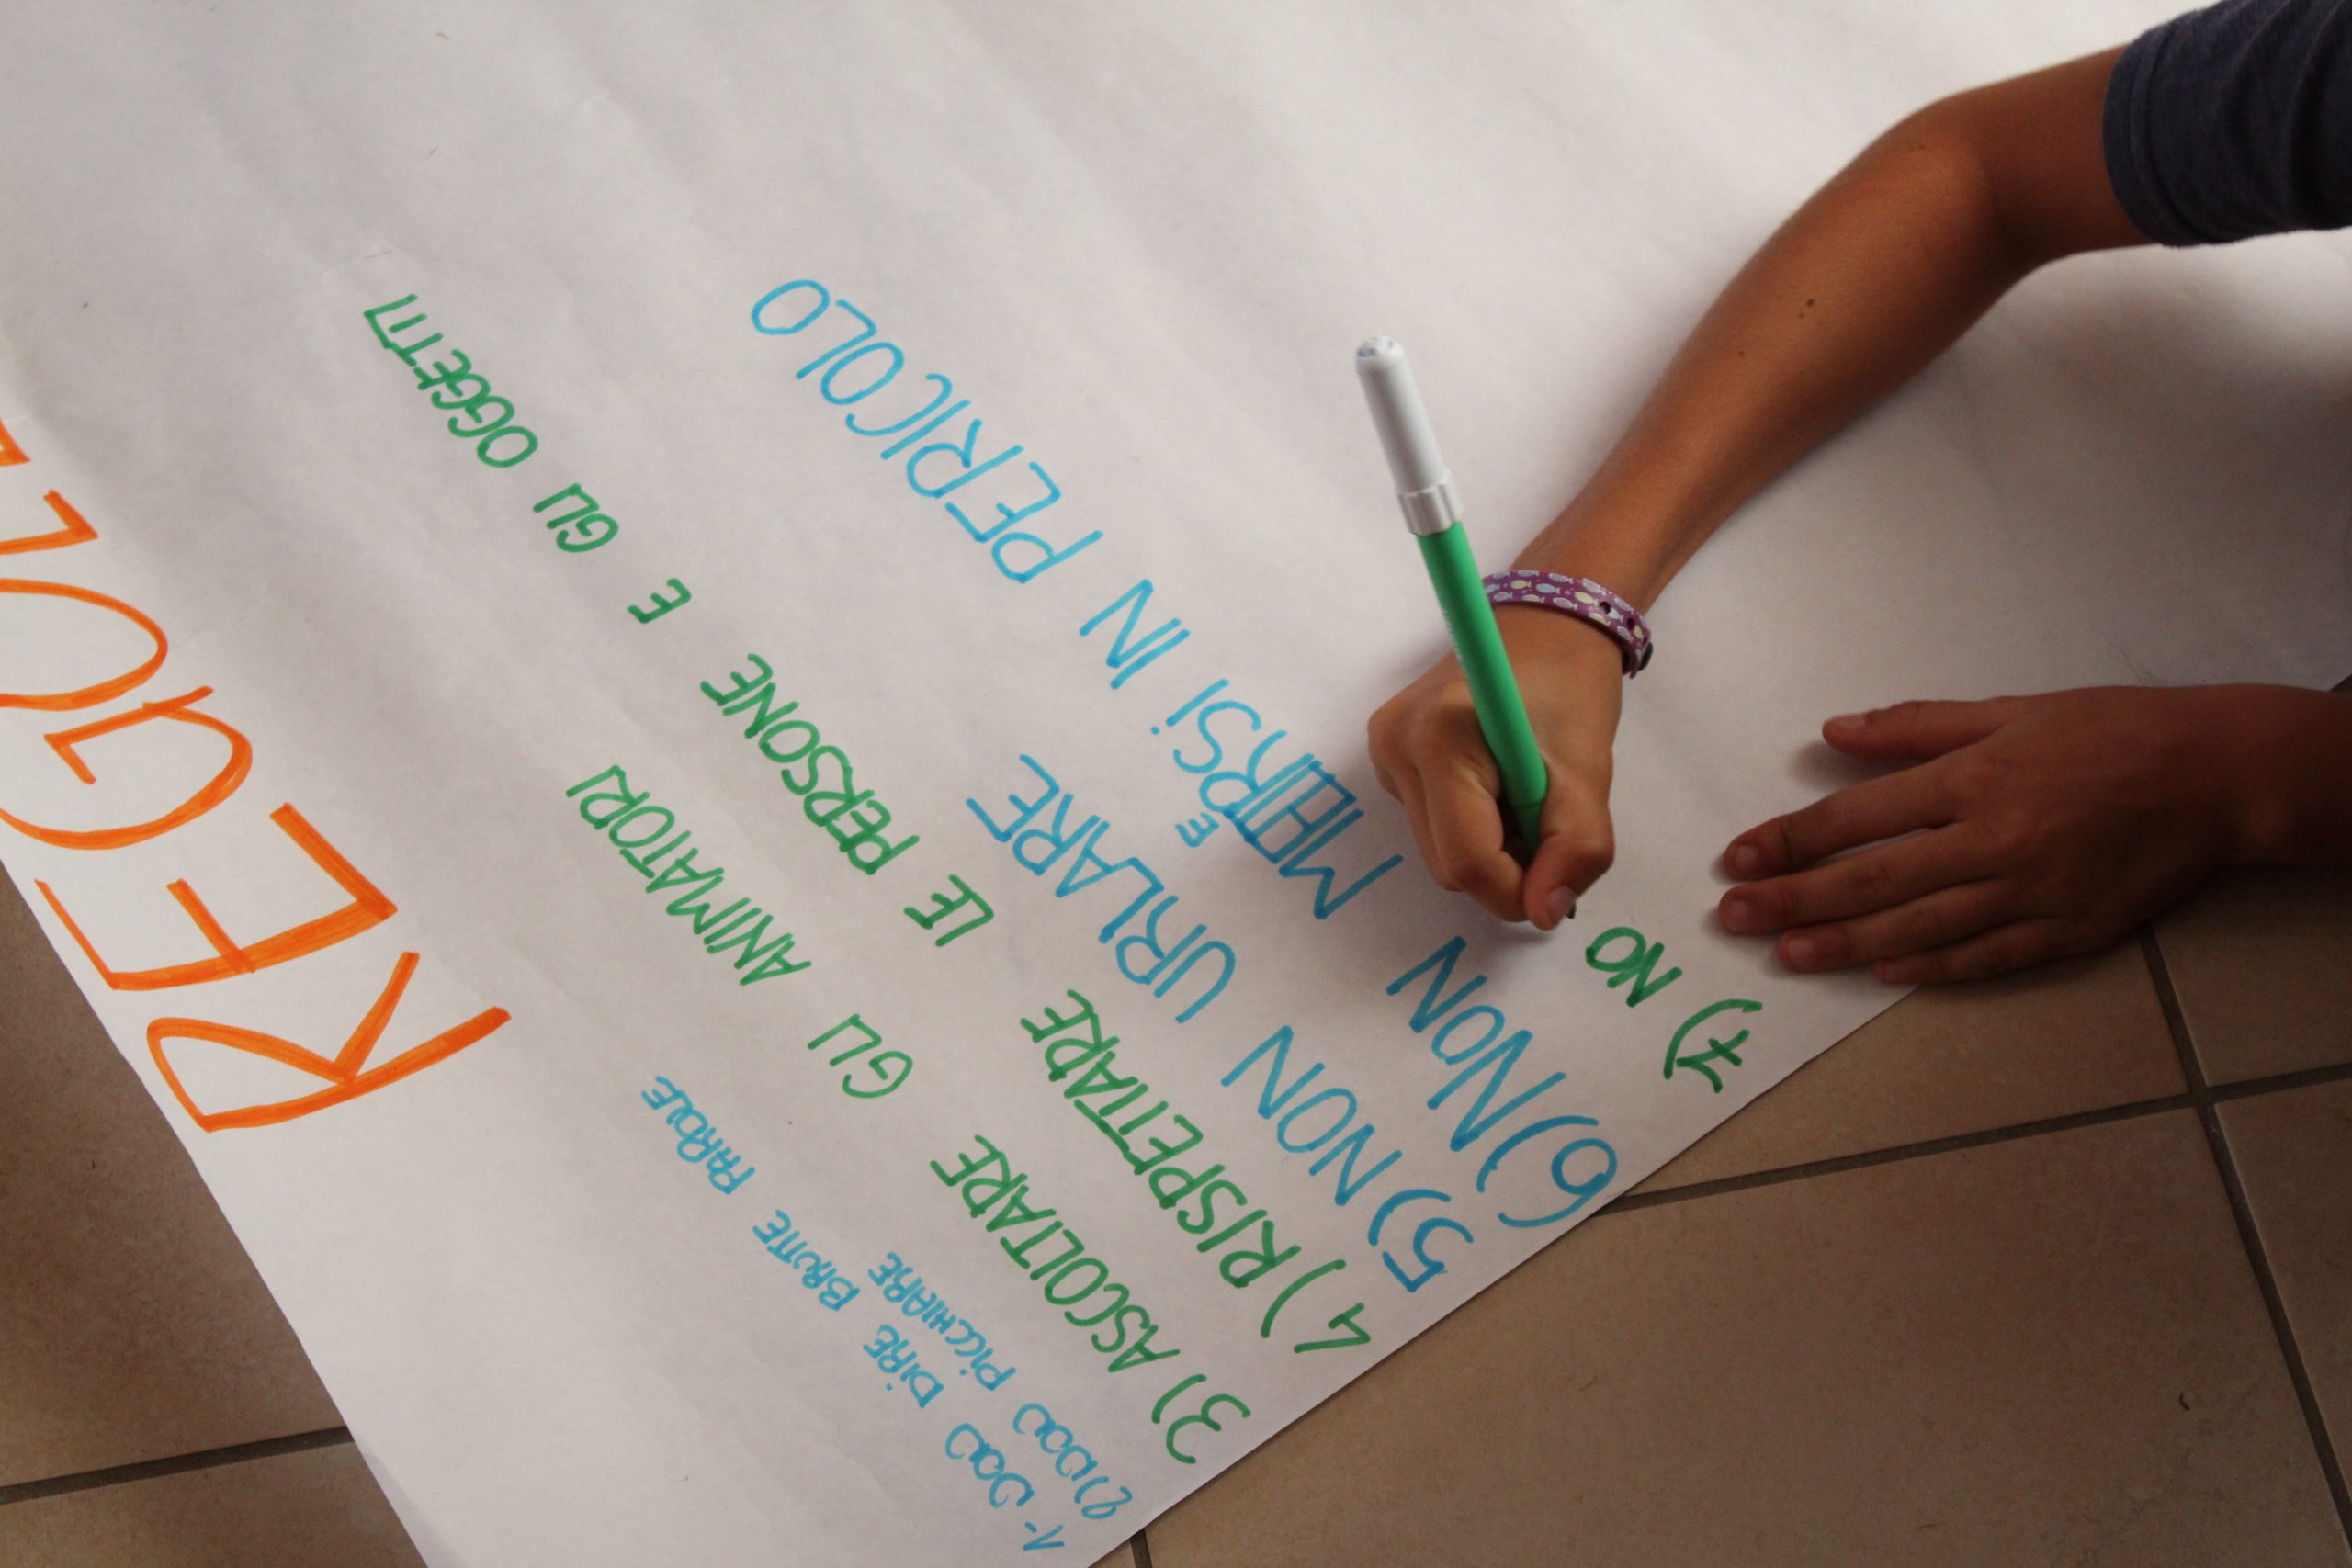 REGOL
1- Non DiRE BRUTTE PAROLE
2) Non PiCCHIARE
3) ASCOLTARE GLI ANIMATORI
4) RISPETTARE LE PERSONE E GLI OGGETTI
5) NON URLARE
6) NON METTERSi IN PERICOLO
7) NO